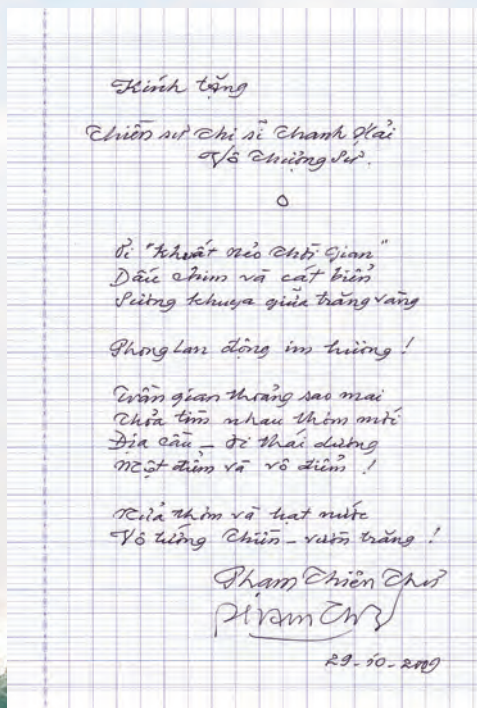 Kính tặng
Thiền sư Thi sĩ Thanh Hải
Vô Thượng Sư.
Đi "khuất nẻo thời gian"
Dấu chim và cát biển
Sương khuya giữa trăng vàng
Phong lan động im hương!
Trần gian thoảng sao mai
Thỏa tìm nhau thơm mới
Địa cầu - đi thái dương
Một điểm và vô điểm!
thơm và hạt nước
Vô tướng Thiền - vườn trăng!
Phạm Thiên Thư
29-10-2009